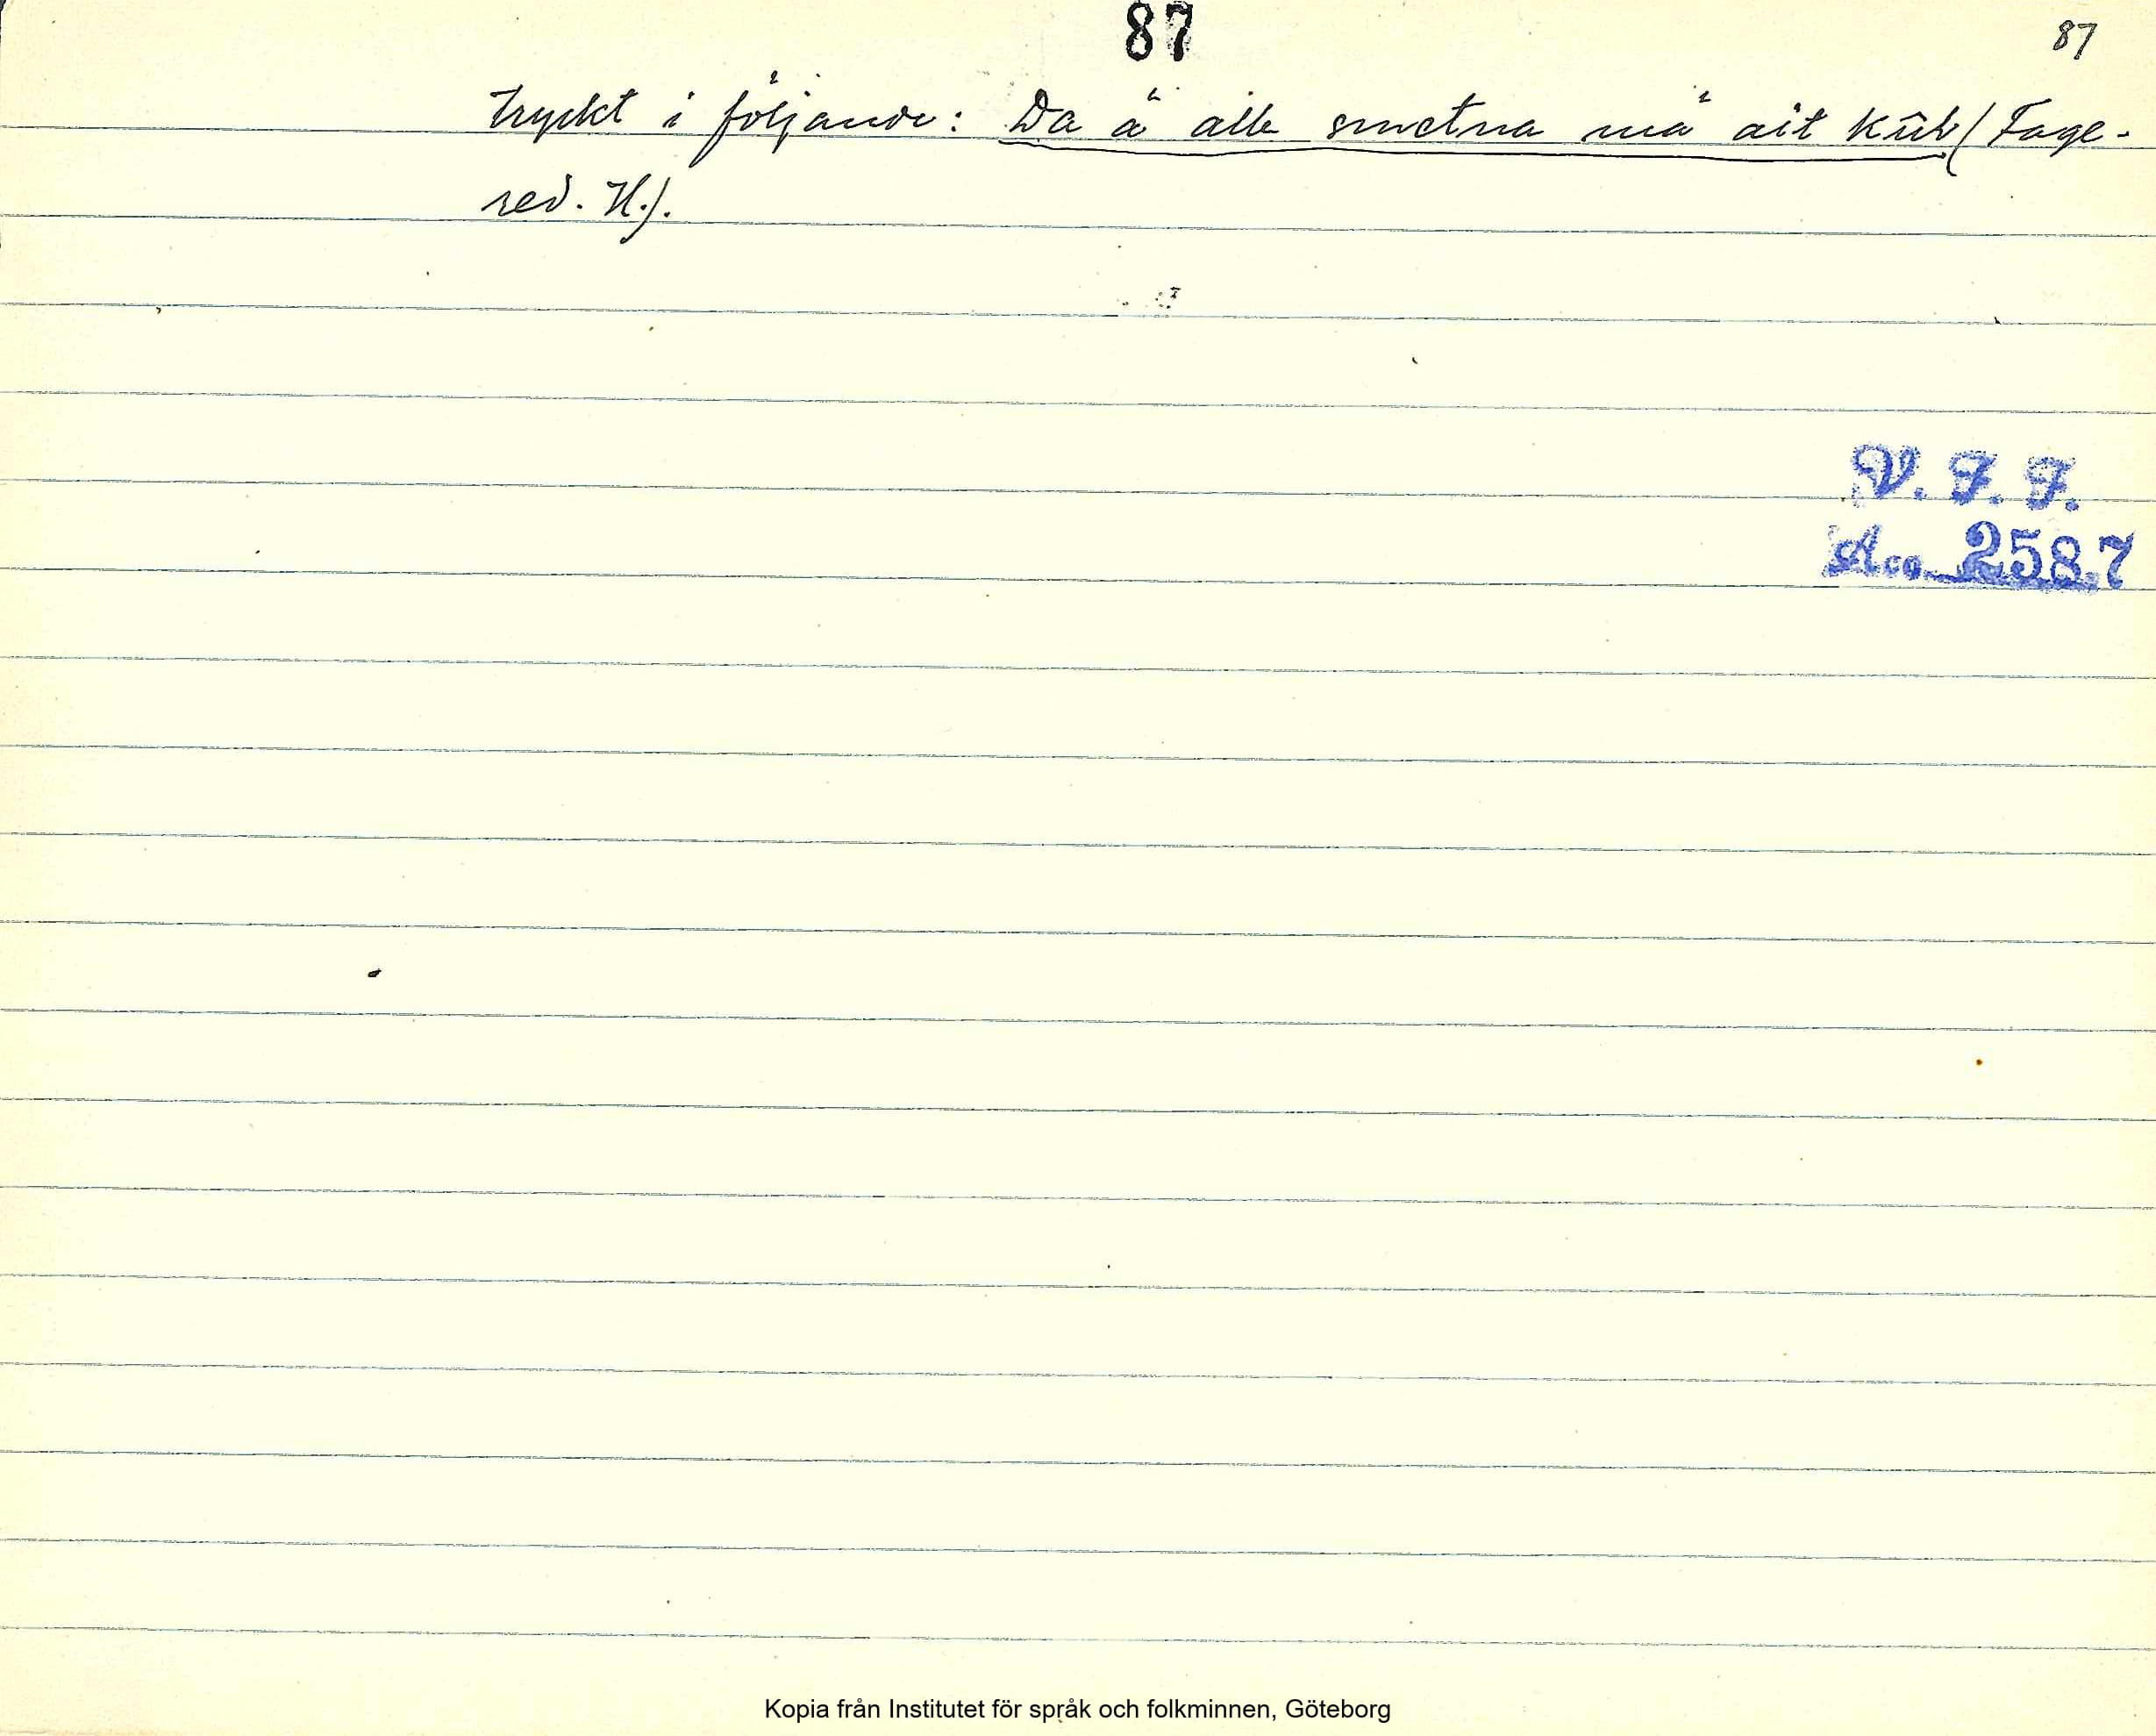 87
87
tryckt i följande: Da ä alle smetna mä ait (Fage-
red. H.).
V. F. F.
Acc. 2587
Kopia från Institutet för språk och folkminnen, Göteborg